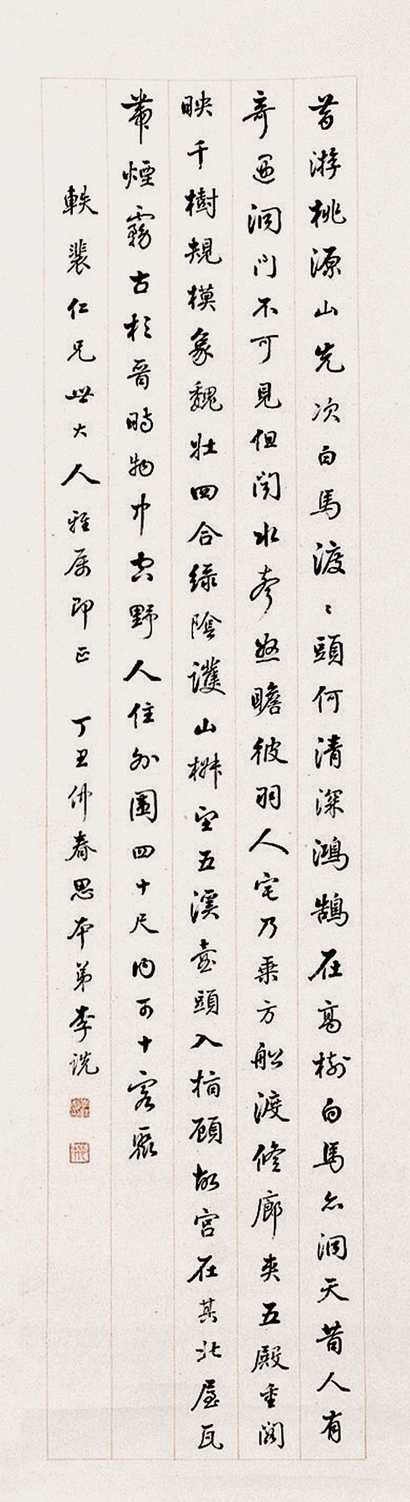 昔游桃源山先次白馬渡〻頭何清深鴻鵠在高樹白馬亦洞天昔人有
奇遇洞門不可見但閱水奔怒瞻彼羽人宅乃乘方船渡修廊夾五殿重閣
映千樹規模象魏壯四合綠陰護山椒望五溪壺頭入指顧故宮在其北屋瓦
帶煙霧古杉晉時物中空野人住外圍四十尺內可十客聚
軼裴仁兄世大人雅屬即正 丁丑仲春思本弟李詵